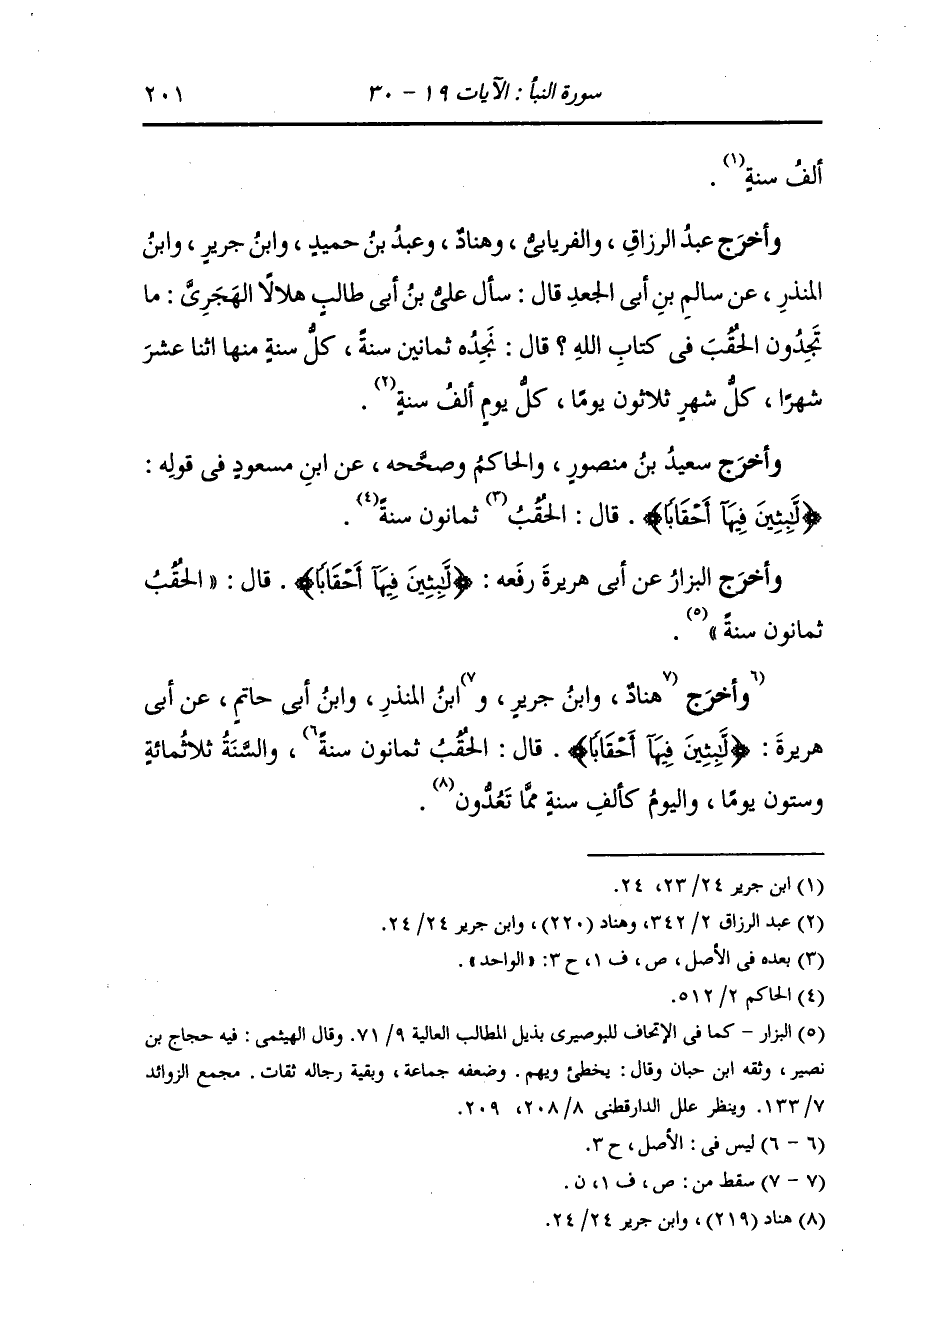 سورة النبأ : الآيات ١٩ - ٣٠ ٢٠١
ألفُ سنةٍ(١) .
وأخرَج عبدُ الرزاقِ ، والفريابىُّ ، وهنادٌ ، وعبدُ بنُ حميدٍ ، وابنُ جريرٍ ، وابنُ
المنذرِ ، عن سالمِ بنِ أبى الجعدِ قال : سأل علىُّ بنُ أبى طالبٍ هلالًا الهَجَرِىَّ : ما
تَجِدُون الحُقُبَ فى كتابِ اللهِ ؟ قال : نَجِدُه ثمانين سنةً ، كلُّ سنةٍ منها اثنا عشرَ
شهرًا ، كلُّ شهرٍ ثلاثون يومًا ، كلُّ يومٍ ألفُ سنةٍ(٢) .
وأخرَج سعيدُ بنُ منصورٍ ، والحاكمُ وصحَّحه ، عن ابنِ مسعودٍ فى قولِه :
﴿لَّبِثِينَ فِيهَآ أَحْقَابًا﴾ . قال : الحُقُبُ(٣) ثمانون سنةً(٤) .
وأخرَج البزارُ عن أبى هريرةَ رفَعه : ﴿لَّبِثِينَ فِيهَآ أَحْقَابًا﴾ . قال : « الحُقُبُ
ثمانون سنةً »(٥) .
(٦وأخرَج (٧هنادٌ ، وابنُ جريرٍ ، و٧)ابنُ المنذرِ ، وابنُ أبى حاتمٍ ، عن أبى
هريرةَ : ﴿لَّبِثِينَ فِيهَآ أَحْقَابًا﴾ . قال : الحُقُبُ ثمانون سنةً٦) ، والسَّنَةُ ثلاثُمائةٍ
وستون يومًا ، واليومُ كألفِ سنةٍ ممَّا تَعُدُّون(٨) .
(١) ابن جرير ٢٤/ ٢٣، ٢٤.
(٢) عبد الرزاق ٢/ ٣٤٢، وهناد (٢٢٠) ، وابن جرير ٢٤/ ٢٤.
(٣) بعده فى الأصل ، ص ، ف ١، ح ٣: « الواحد » .
(٤) الحاكم ٢/ ٥١٢.
(٥) البزار - كما فى الإتحاف للبوصيرى بذيل المطالب العالية ٩/ ٧١. وقال الهيثمى : فيه حجاج بن
نصير ، وثقه ابن حبان وقال : يخطئ ويهم . وضعفه جماعة ، وبقية رجاله ثقات . مجمع الزوائد
٧/ ١٣٣. وينظر علل الدارقطنى ٨/ ٢٠٨، ٢٠٩.
(٦ - ٦) ليس فى : الأصل ، ح ٣.
(٧ - ٧) سقط من : ص ، ف ١، ن .
(٨) هناد (٢١٩) ، وابن جرير ٢٤/ ٢٤.